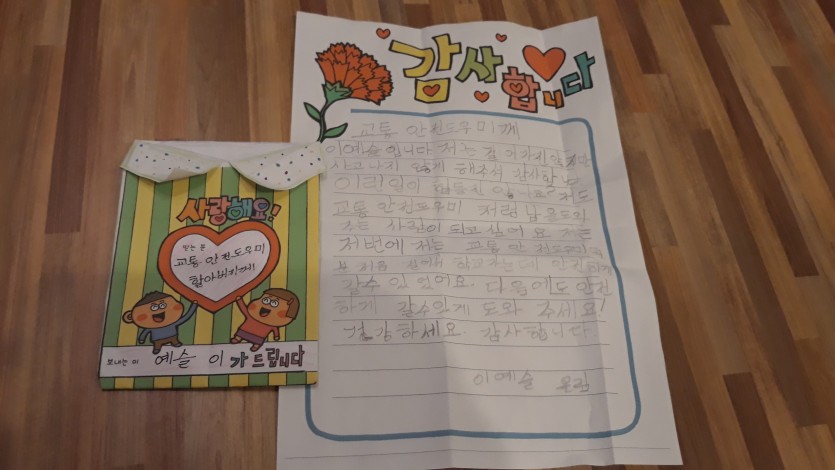 사랑해요!
받는 분
교통 안전도우미
할아버지께
보내는 이 예슬 이가 드립니다
감사합니다
교통 안전도우미께
이예슬입니다 저는 걸어가지
사고나지 않게 해주셔 감사합니
이런일이 힘들진 않나요? 저도
교통 안전도우미 처럼 남을도와
주는 사람이 되고 싶어요 저는
저번에 저는 교통 안전도우미
학교가는데 안전하게
갈수 있었어요. 다음에도 안전
하게 갈수있게 도와 주세요!
건강하세요. 감사합니다
이예슬 올림